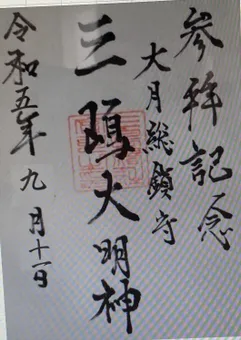 参拝記念
大月総鎮守
三嶋大明神
令和五年九月十一日